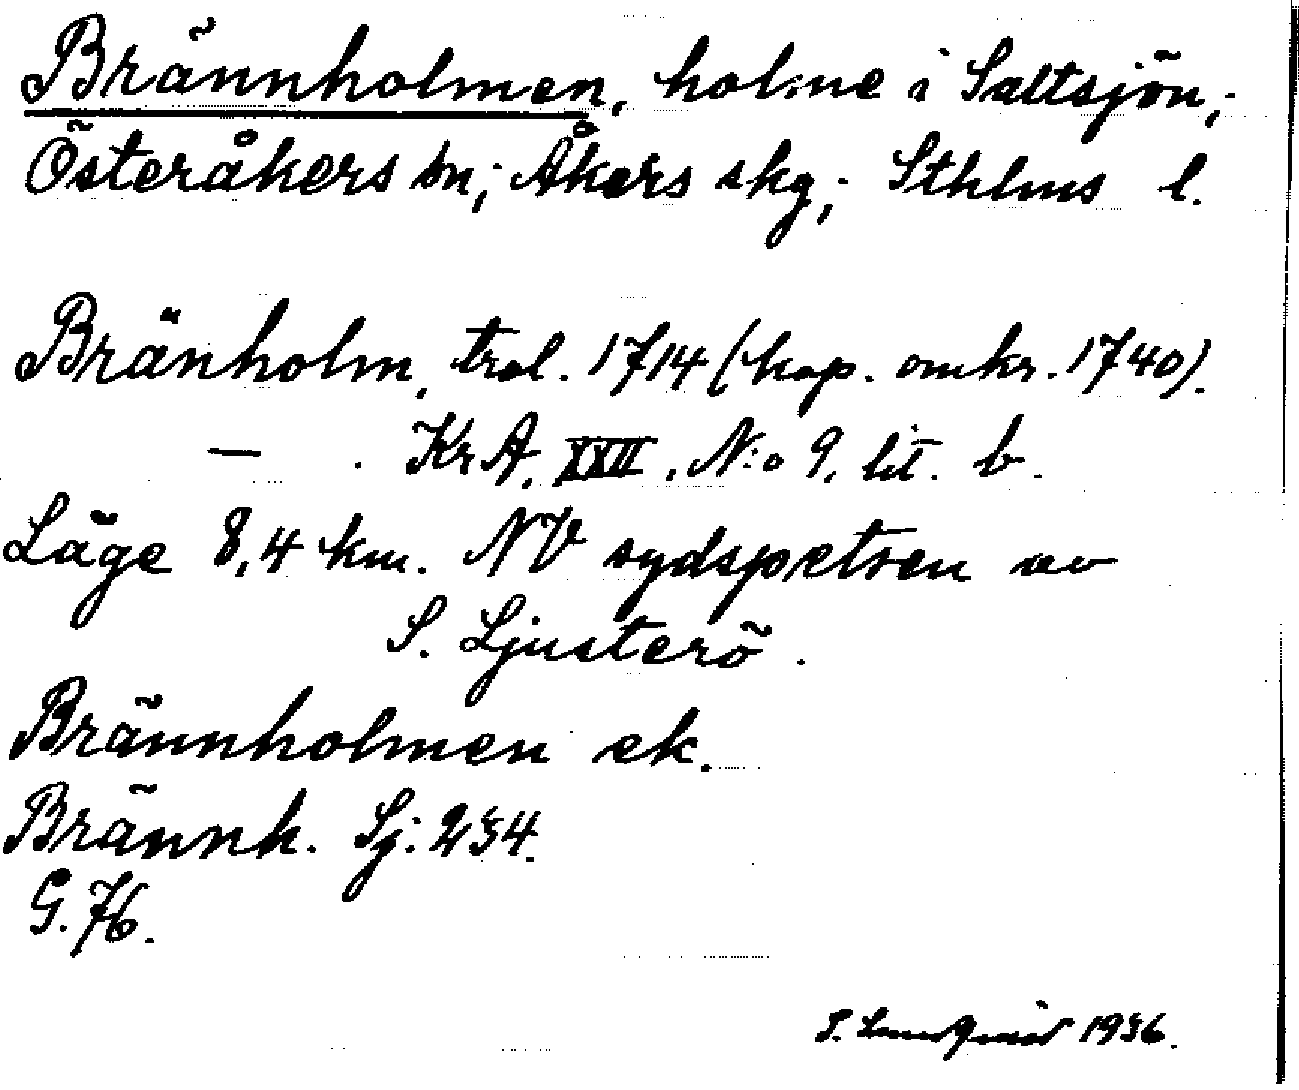 Brännholmen, holme i Saltsjön;
Österåkers sn; Åkers skg; Sthlms l.
Bränholm, trol. 1714 (kop. omkr. 1740).
— . KrA. XXII. N:o 9. lit. b.
Läge 8,4 km. NV sydspetsen av
S. Ljusterö.
Brännholmen ek.
Brännh. Sj: 234.
G. 76.
S. 1936.